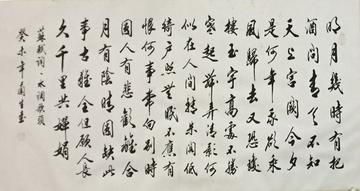 明月幾時有把
酒問青天不知
天上宮闕今夕
是何年我欲乘
風歸去又恐瓊
樓玉宇高處不勝
寒起舞弄清影何
似在人間轉朱閣低
綺戶照無眠不應有
恨何事常向別時
圓人有悲歡離合
月有陰晴圓缺此
事古難全但願人長
久千里共嬋娟
蘇軾詞水調歌頭
癸未年